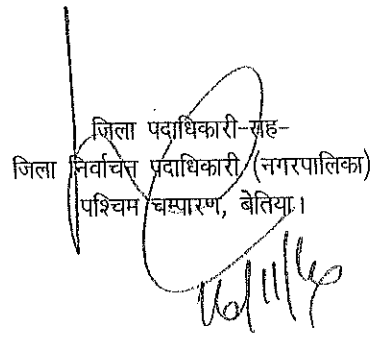 जिला पदाधिकारी-सह-
जिला निर्वाचन पदाधिकारी (नगरपालिका)
पश्चिम चम्पारण, बेतिया।